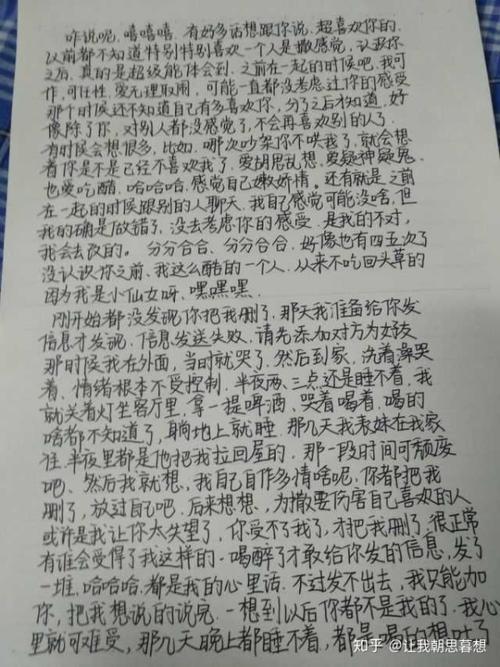 咋说呢,嘻嘻嘻.有好多话想跟你说,超喜欢你的.
以前都不知道特别特别喜欢一个人是撒感觉,认识你
之后,真的是超级能体会到.之前在一起的时候吧,我可
作,可任性,爱无理取闹,可能一直都没考虑过你的感受
那个时候还不知道自己有多喜欢你,分了之后才知道,好
像除了你,对别人都没感觉了,不会再喜欢别的人了.
有时候会想很多,比如.哪次吵架你不哄我了,就会想
着你是不是已经不喜欢我了,爱胡思乱想,爱疑神疑鬼,
也爱吃醋,哈哈哈,感觉自己嫩矫情。还有就是之前
在一起的时候跟别的人聊天,我自己感觉可能没啥,但
我的确是做错了,没去考虑你的感受,是我的不对,
我会去改的。分分合合、分分合合,好像也有四五次了
没认识你之前、我这么酷的一个人,从来不吃回头草的
因为我是小仙女呀、嘿嘿嘿、
刚开始都没发现你把我删了,那天我准备给你发
信息才发现,信息发送失败,请先添加对方为好友
那时候我在外面,当时就哭了,然后到家,洗着澡哭
着、情绪根本不受控制.半夜两、三点还是睡不着,我
就关着灯坐客厅里,拿一提啤酒、哭着喝着,喝的
啥都不知道了,躺地上就睡.那几天我表妹在我家
住,半夜里都是他把我拉回屋的.那一段时间可颓废
吧、然后我就想,我自己自作多情啥呢,你都把我
删了,放过自己吧.后来想想、为撒要伤害自己喜欢的人
或许是我让你太失望了,你受不了我了,才把我删了,很正常
有谁会受得了我这样的.喝醉了才敢给你发的信息,发了
一堆,哈哈哈.都是我的心里话.不过发不出去,我只能加
你,把我想说的说完.一想到以后你都不是我的了.我心
里就可难受,那几天晚上都睡不着,都
知乎 @让我朝思暮想